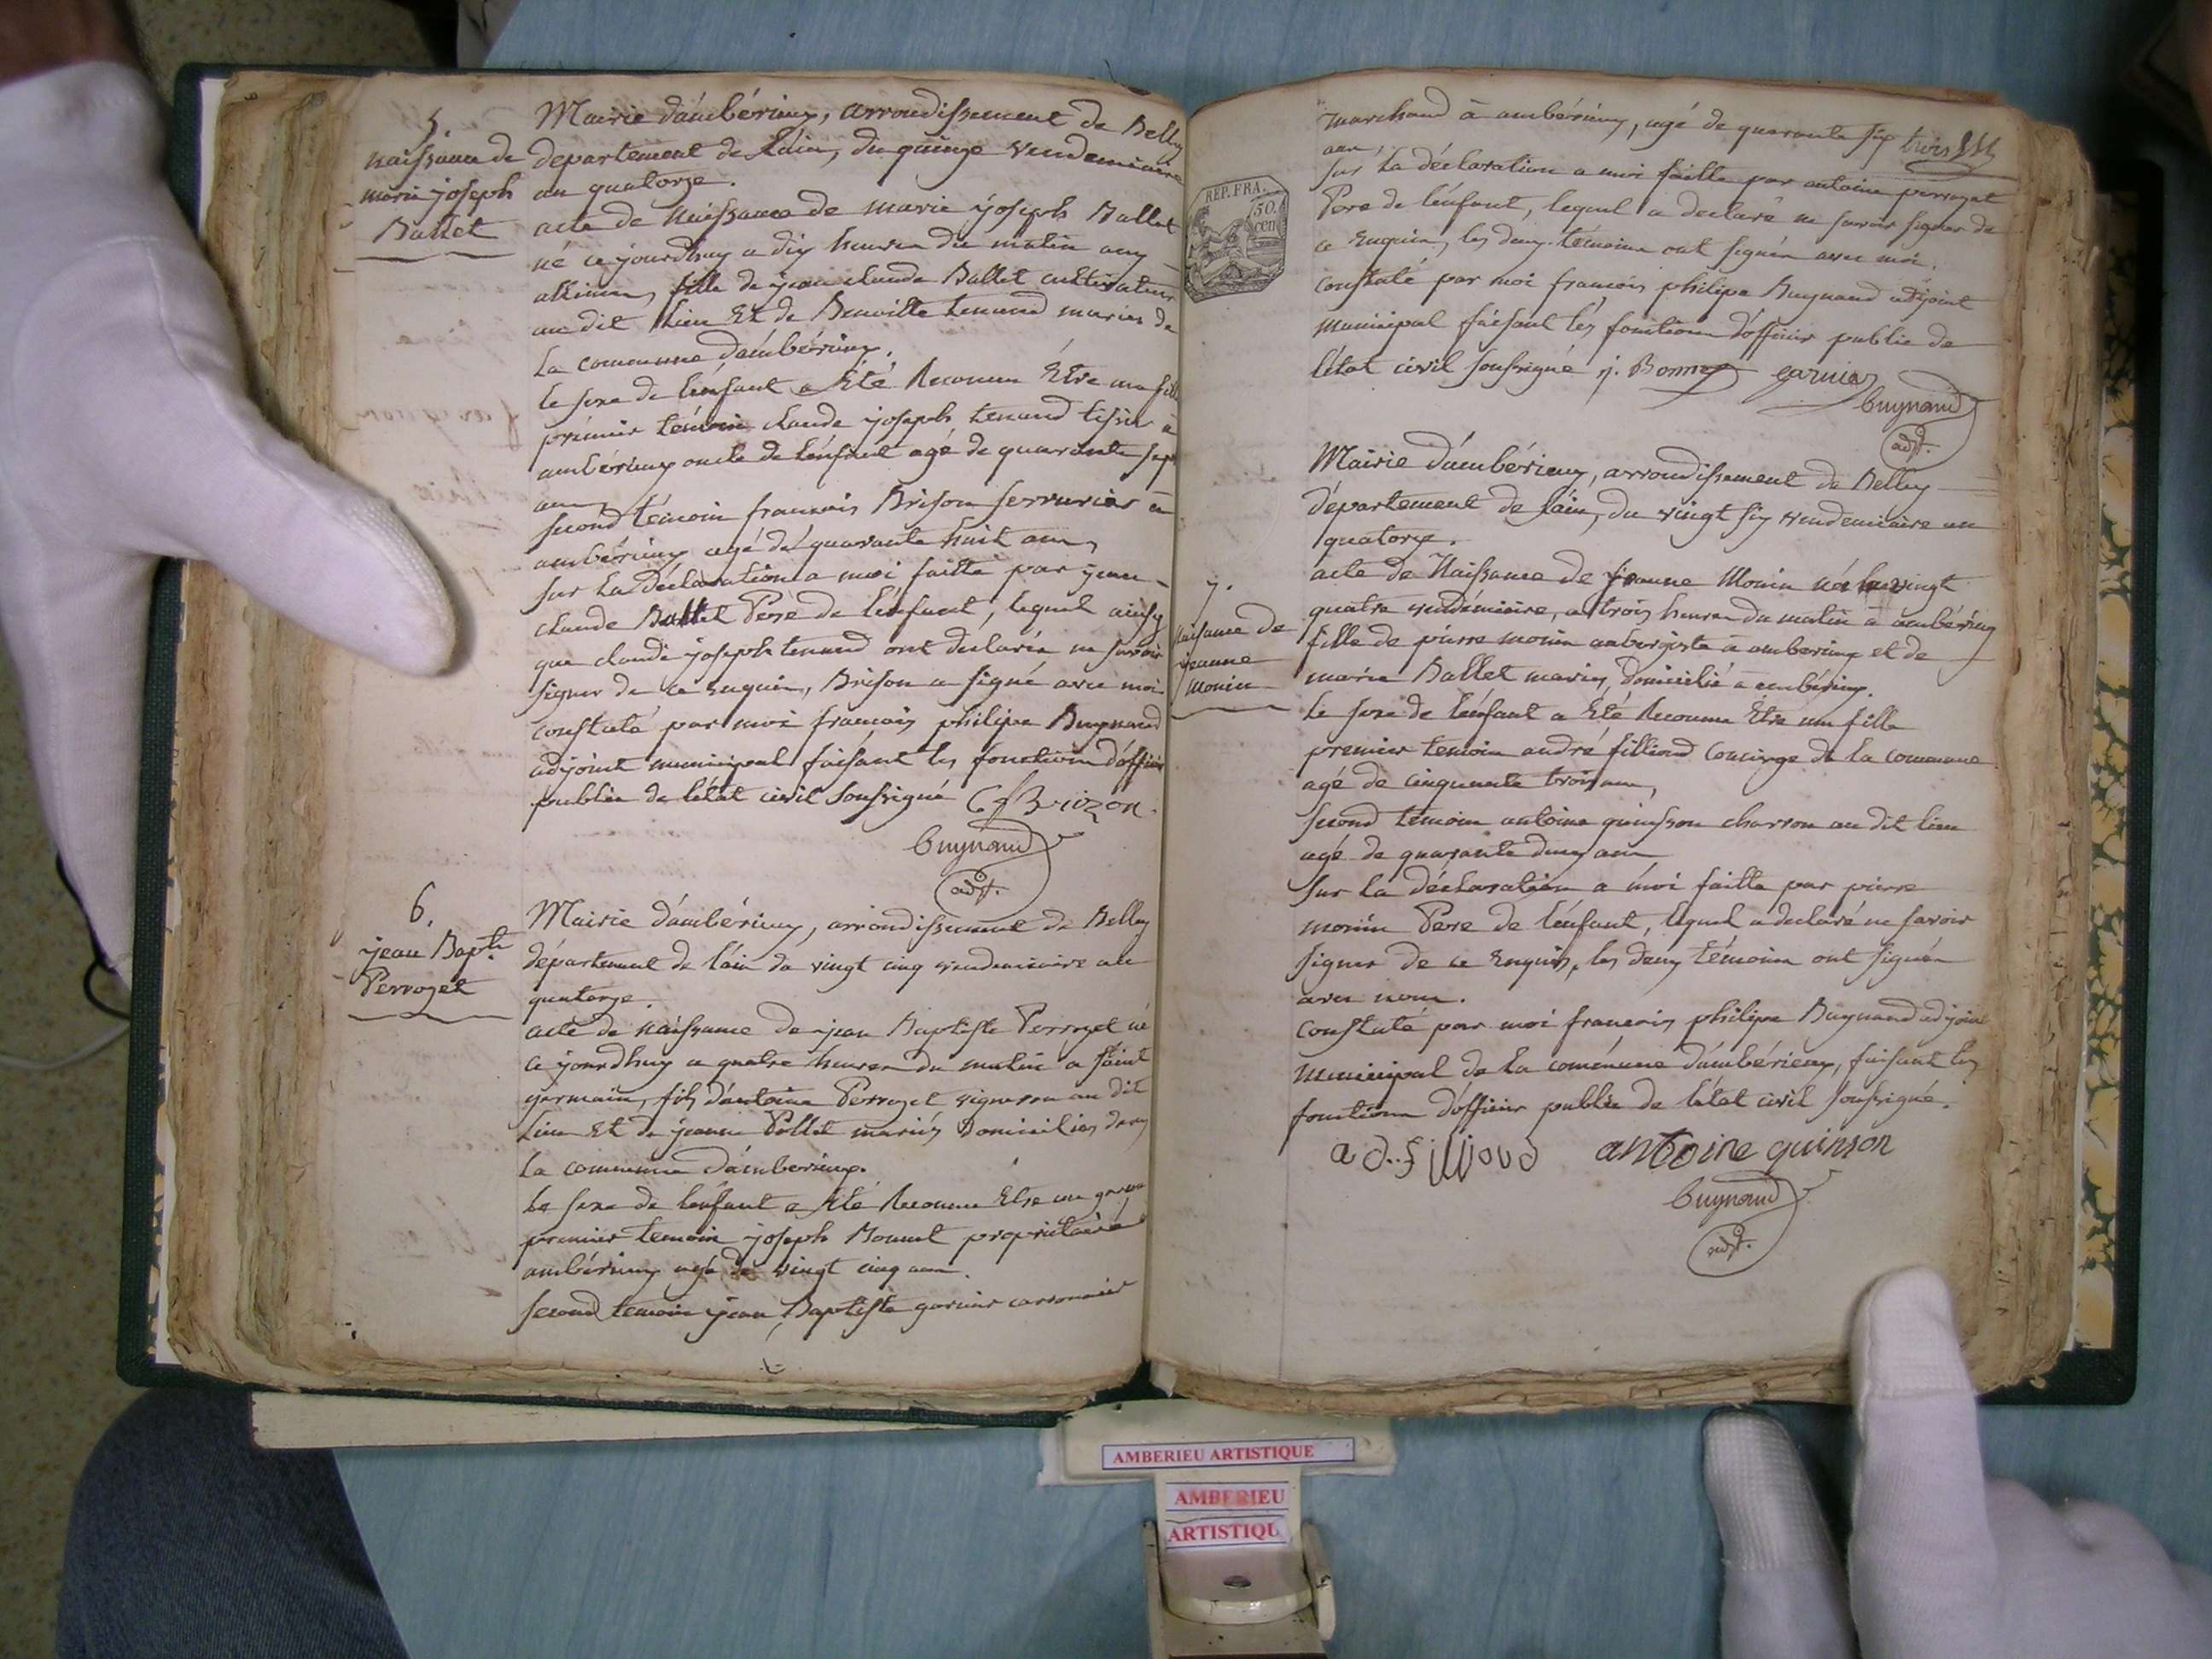 5.
naissance de
marie joseph
Ballet
Mairie d'ambérieux, arrondissement de Belley
departement de l'ain, du quinze vendemiaire
an quatorze.
acte de naissance de marie joseph Ballet
né ce jourdhuy a dix heures du matin aux
allimes, fille de jean claude Ballet cultivateur
au dit lieu Et de Benoitte tenand mariés de
la commune d'ambérieux.
le sexe de l'enfant a Eté Reconnu Etre une fille
prémier témoin claude joseph tenand tissier à
ambérieux oncle de l'enfant agé de quarante sept
ans
second témoin francois Brison serrurier à
ambérieux agé de quarante huit ans,
sur la déclaration a moi faitte par jean
claude Ballet Père de l'enfant, lequel ainsy
que claude joseph tenand ont declarés ne savoir
signer de ce Enquis, Brison a signé avec moi
constaté par moi francois philipe Buynand
adjoint municipal faisant les fonctions d'officier
publics de l'état civil soussigné C f Brizon.
Buynand
adjt.
6.
jean Bapte
Perrozet
Mairie d'ambérieux, arrondissement de Belley
département de l'ain du vingt cinq vendemiaire an
quatorze.
acte de naissance de jean Baptiste Perrozet né
ce jourdhuy a quatre heures du matin a saint
germain, fils d'antoine Perrozet vigneron au dit
lieu Et de jeanne Pellet mariés Domiciliés dans
la commune d'amberieux.
le sexe de l'enfant a Eté Reconnu Etre un garçon
premier temoin joseph Bonnet propriétaire à
ambérieux agé de vingt cinq ans.
second temoin jean Baptiste garnier cartonnier
REP. FRA.
50.
cen
marchand à ambérieux, agé de quarante six trois
ans,
sur la déclaration a moi faitte par antoine perrozet
Pere de l'enfant, lequel a declaré ne savoir signer de
ce Enquis, les deux témoins ont signés avec moi.
constaté par moi francois philipe Buynand adjoint
municipal faisant les fonctions d'officier public de
l'état civil soussigné j. Bonnet garnier
Buynand
adjt.
7.
naissance de
jeanne
monin
Mairie d'ambérieux, arrondissement de Belley
département de l'ain, du vingt six vendemiaire an
quatorze.
acte de Naissance de jeanne Monin née le vingt
quatre vendémiaire, a trois heures du matin à ambérieux
fille de pierre monin aubergiste à amberieux et de
marie Ballet mariés, domicilié a ambérieux.
le sexe de l'enfant a Eté Reconnu Etre une fille
premier temoin andré filliond concierge de la commune
agé de cinquante trois ans,
second témoin antoine quinsson charron au dit lieu
agé de quarante deux ans
sur la déclaration a moi faitte par pierre
monin Pere de l'enfant, lequel a declaré ne savoir
signer de ce Enquis, les deux témoins ont signés
avec nous.
constaté par moi francois philipe Buynand adjoint
municipal de la commune d'ambérieux, faisant les
fonctions d'officier public de l'état civil soussigné.
a d. fillioud antoine quinson
Buynand
adjt.
AMBERIEU ARTISTIQUE
AMBERIEU
ARTISTIQU